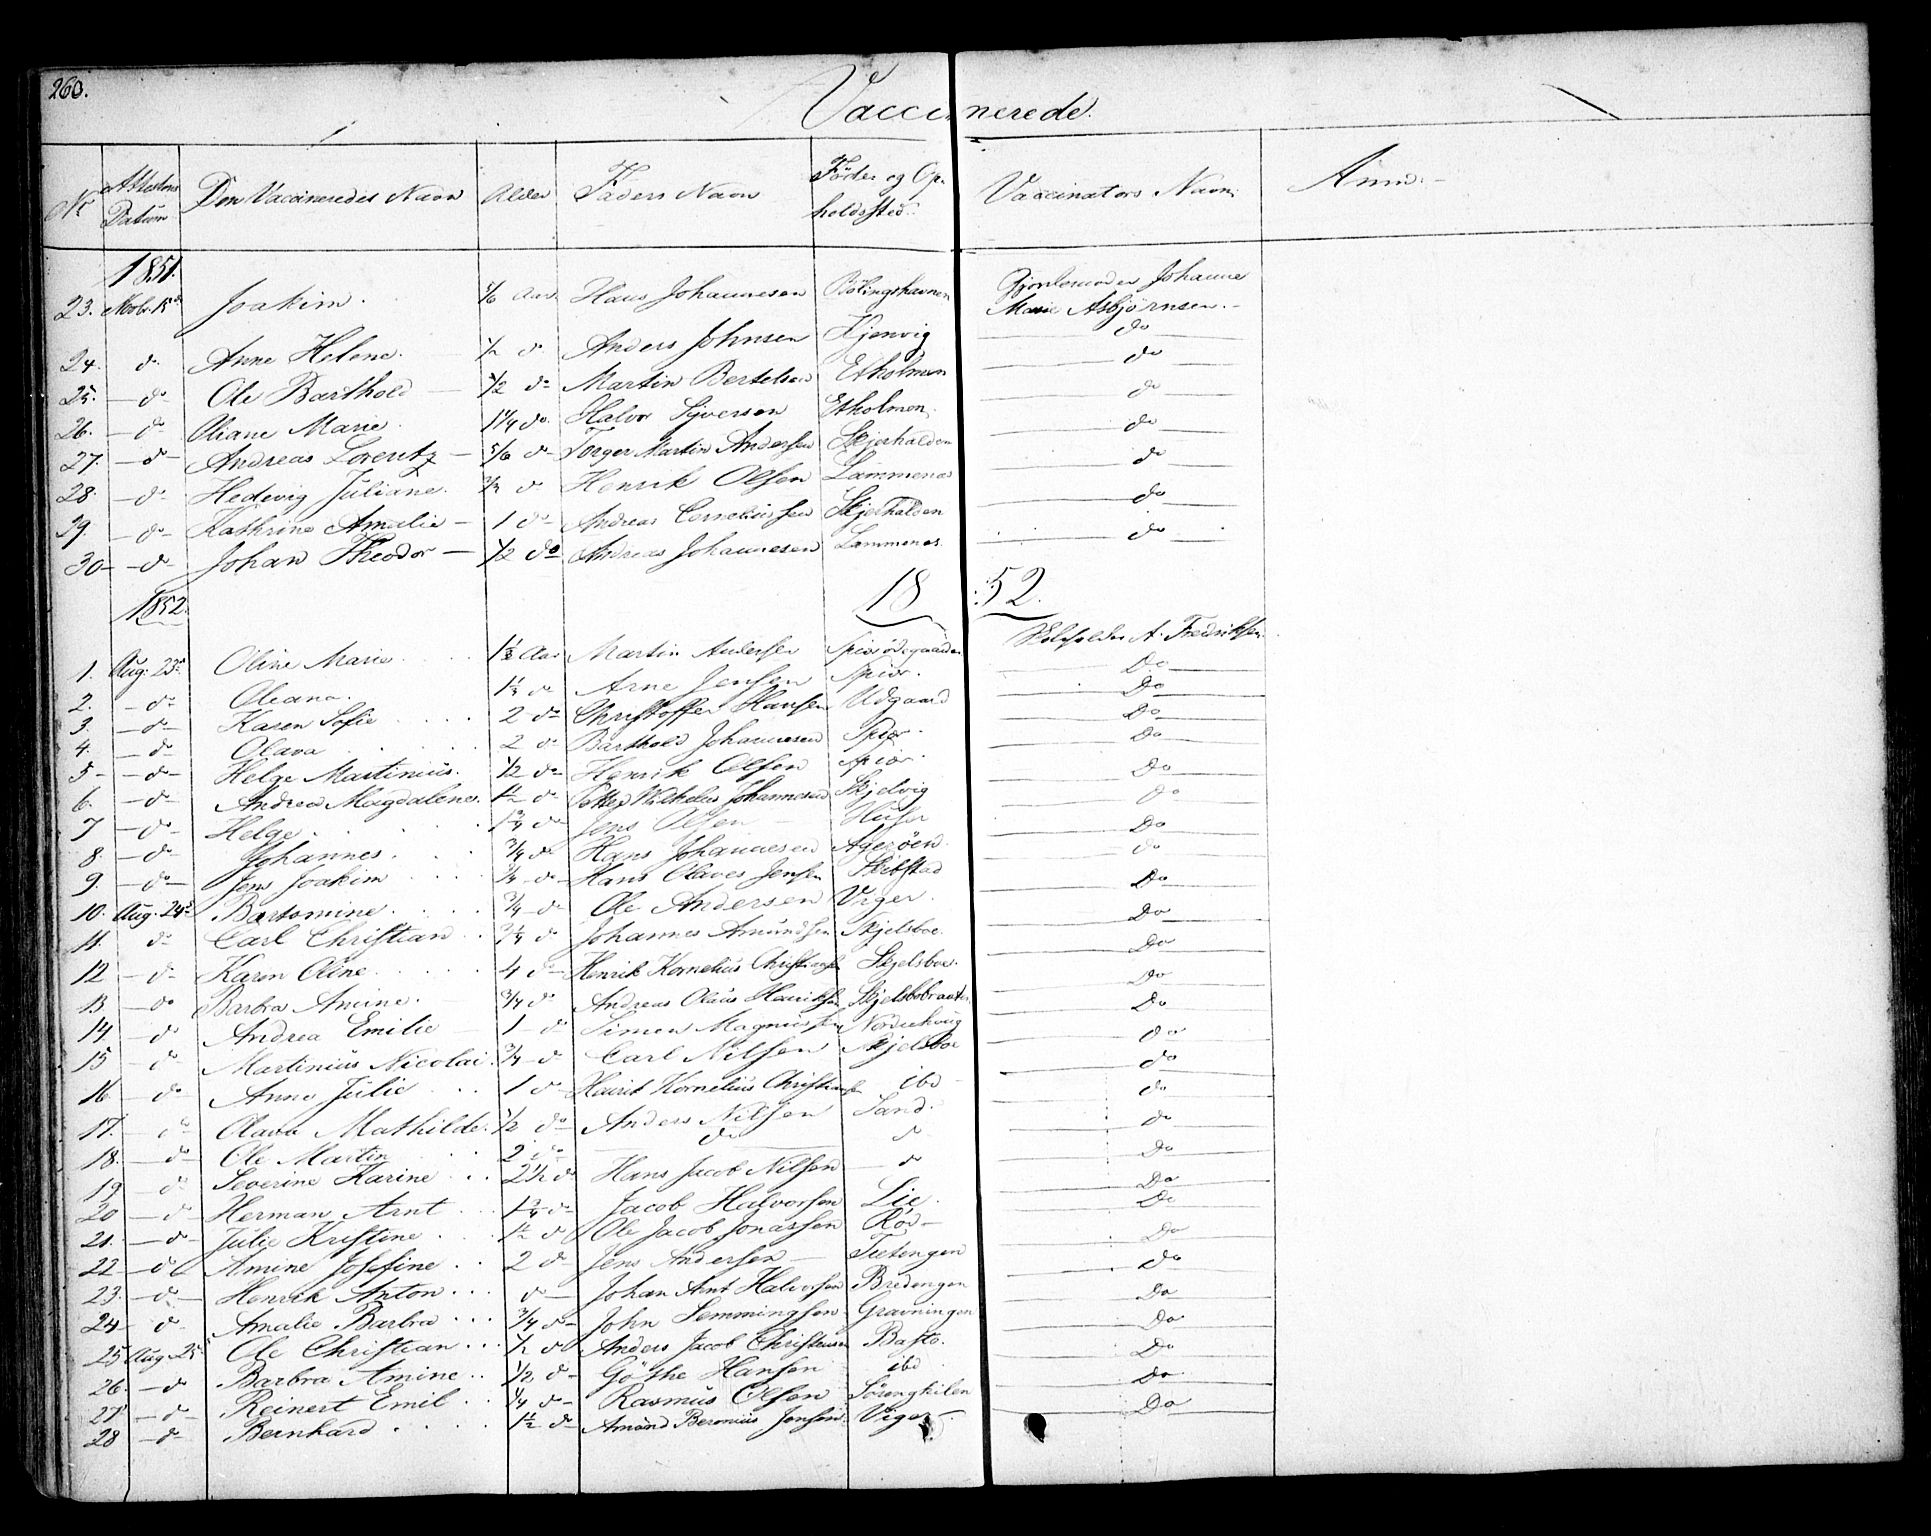 260.
Vaccinerede.
No Attestens Datum Den Vaccineredes Navn Alder Faders Navn Føde- og Opholdssted Vaccinators Navn Anm.
1851.
23. Novbr. 15de Joakim. 5/6 Aar Hans Johannesen Bølingshavnen Gjordemoder Johanne Marie Asbjørnsen.
24. do Anne Helene. 1/2 do Anders Johnsen Kjenvig do
25. do Ole Barthold 1/2 do Martin Bertelsen Etholmen do
26. do Oliane Marie. 1 1/4 do Halvor Syversen Etholmen. do
27. do Andreas Lorentz 5/6 do Torger Martin Andersen Skjerhalden do
28. do Hedevig Juliane. do Henrik Olsen Lammenæs do
29. do Kathrine Amalie 1 do Andreas Corneliussen Skjerhalden do
30 do Johan Theodor 1/2 do Andreas Johannesen Lammenæs. do
1852. 1852.
1. Aug. 23de Oline Marie Aar Martin Andersen Spiørødegaarden A. Fredriksen.
2. do Oleana. do Arne Jensen Spiør. Do
3. do Karen Sofie 2 do Christoffer Hansen Udgaard Do
4. do Olava 2 do Barthold Johannesen Spiør. Do
5 do Helge Martinius. 1/2 do Henrik Olsen Spiør. Do
6. do Andrea Magdalene. 1 1/2 do Wilhelm Johannesen Skjelvig Do
7 do Helge 1 3/4 do Jens Olsen Huser Do
8. do Johannes. 3/4 do Hans Johannesen Agerøen. Do
9. do Jens Joakim 3/4 do Hans Olaves Jensen Skibstad do
10. Aug. 24de Bartomine 3/4 do Ole Andersen Viger. Do
11. do Carl Christian 3/4 do Johannes Amundsen Skjelsboe. Do
12 do Karen Oline 4 do Henrik Kornelius Christiansen Skjelsboe. Do
13 do Barbra Amine. 3/4 do Andreas Olaus Henriksen Skjelsbobraaten Do
14 do Andrea Emilie 1 do Simen Magnussen Do
15 do Martinius Nicolai. 3/4 do Carl Nilsen Skjelsboe do
16 do Anne Julie 1 do Henrik Kornelius Christiansen ibd do
17. do Olava Mathilde. 1/2 do Anders Nilsen Sand. do
18. do Ole Martin 2 do do do do
19 do Severine Karine 2 1/2 do Hans Jacob Nilsen do Do
20 do Herman Arnt 1 3/4 do Jacob Halvorsen Lie. Do
21. do Julie Kristine 1 1/2 do Ole Jacob Jonassen Rød Do
22 do Amine Josefine 2 do Jens Andersen Tietengen Do
23. do Henrik Anton do Johan Arnt Halvorsen Bredengen do
24 do Amalie Barbra 3/4 do John Semmingsen Gravningen Do
25 Aug. 25de Ole Christian 1/2 do Anders Jacob Christensen Basto. Do
26. do Barbra Amine 1/2 do Gøthe Hansen ibd Do
27 do Reinert Emil 1/4 do Rasmus Olsen Sørengkilen Do
28 do Bernhard 1 1/2 do Amund Beronius Jensen. Viger. Do